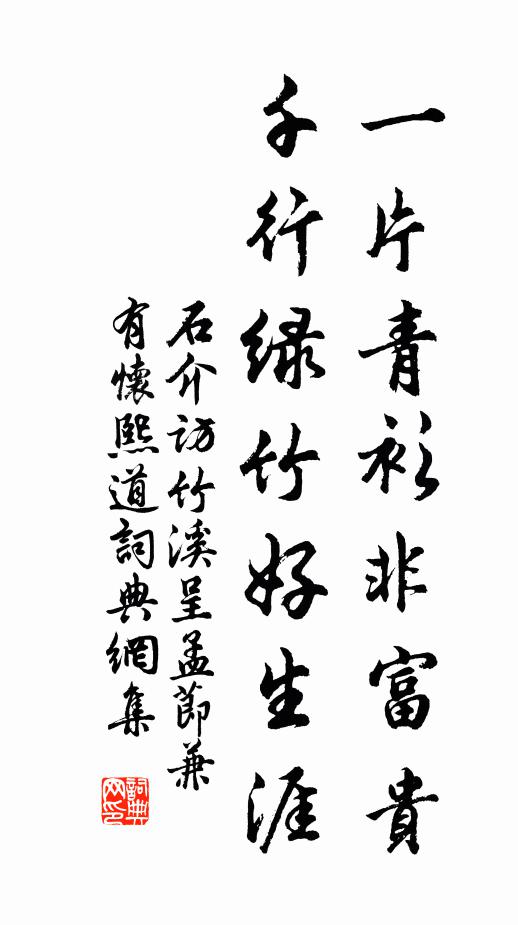 一片青衫非富貴
千行绿竹好生涯
石介访竹溪呈孟節兼
有懷熙道詞典網集
詞典
网印